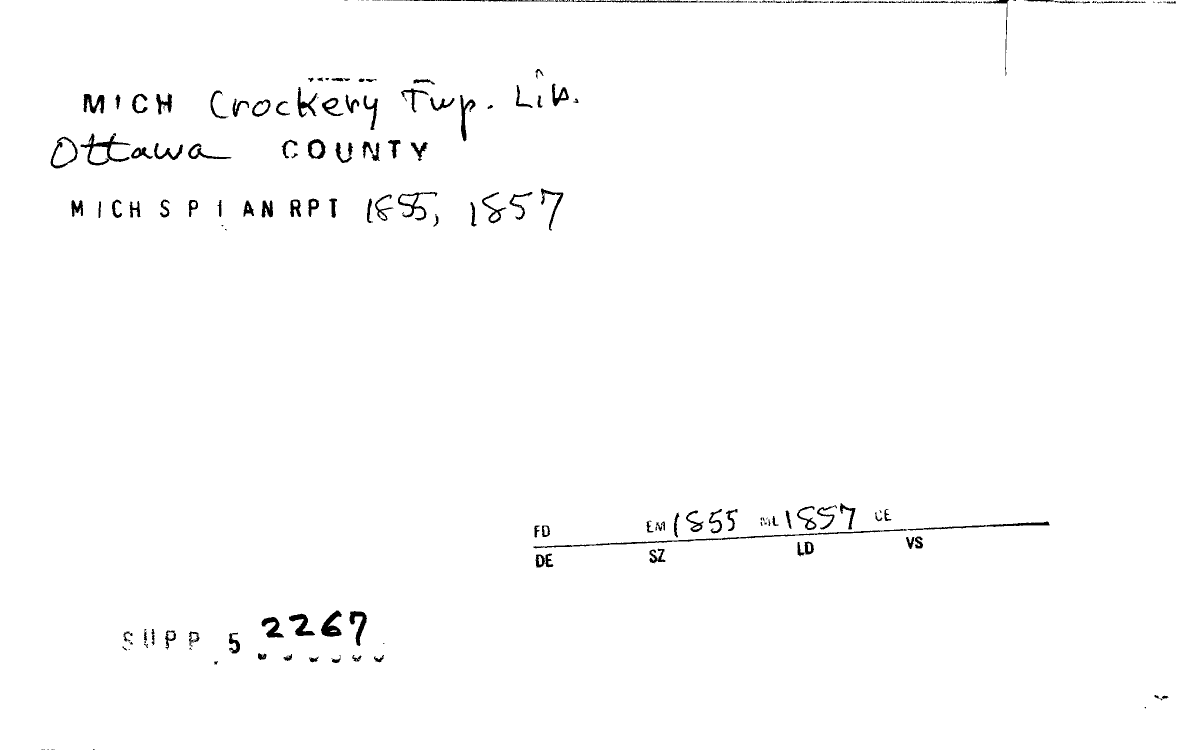 MICH Crockery Twp. Lib.
Ottawa COUNTY
MICH S P I AN RPT 1855, 1857
FD EM 1855 ML 1857 CE
DE SZ LD VS
SUPP 5 2267